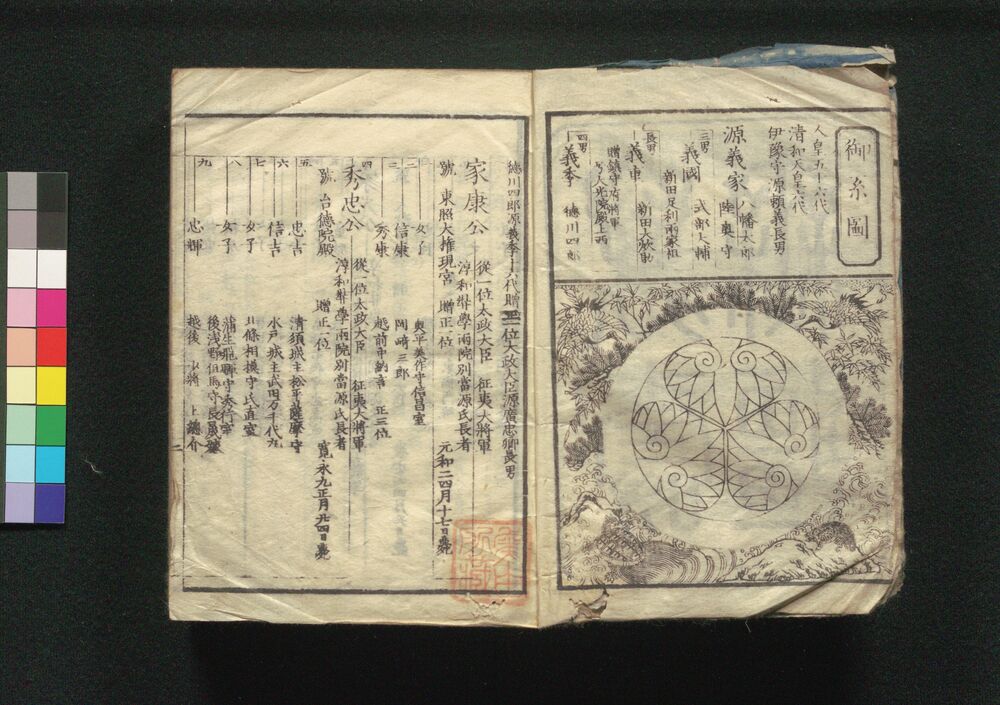 御系圖
人皇五十六代
清和天皇六代
伊豫守源頼義長男
源義家 八幡太郎
陸奥守
三男
義國 式部大輔
新田足利両家祖
長男
義重 新田大炊助
贈鎮守府将軍
四男
義季 徳川四郎
徳川四郎源義季十六代贈正二位大政大臣源廣忠卿長男
家康公 從一位太政大臣 征夷大將軍
淳和奨學両院別當源氏長者
號 東照大権現宮 贈正一位 元和二四月十七日薨
一 女子 奥平美作守信昌室
二 信康 岡崎三郎
三 秀康 越前中納言 正三位
四
秀忠公 從一位太政大臣 征夷大將軍
淳和奨學両院別當源氏長者
號 台德院殿 贈正一位 寛永九正月廿四日薨
五 忠吉 清須城主松平薩摩守
六 信吉 水戸城主武田万千代丸
七 女子 北條相模守氏直室
八 女子 蒲生飛騨守秀行室
後浅野但馬守長晟室
九 忠輝 越後少將 上總介
二